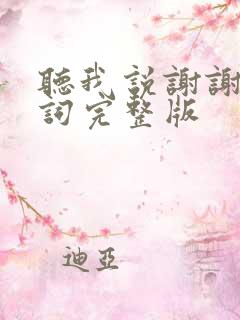 聽我說謝謝
詞完整版
迪亞